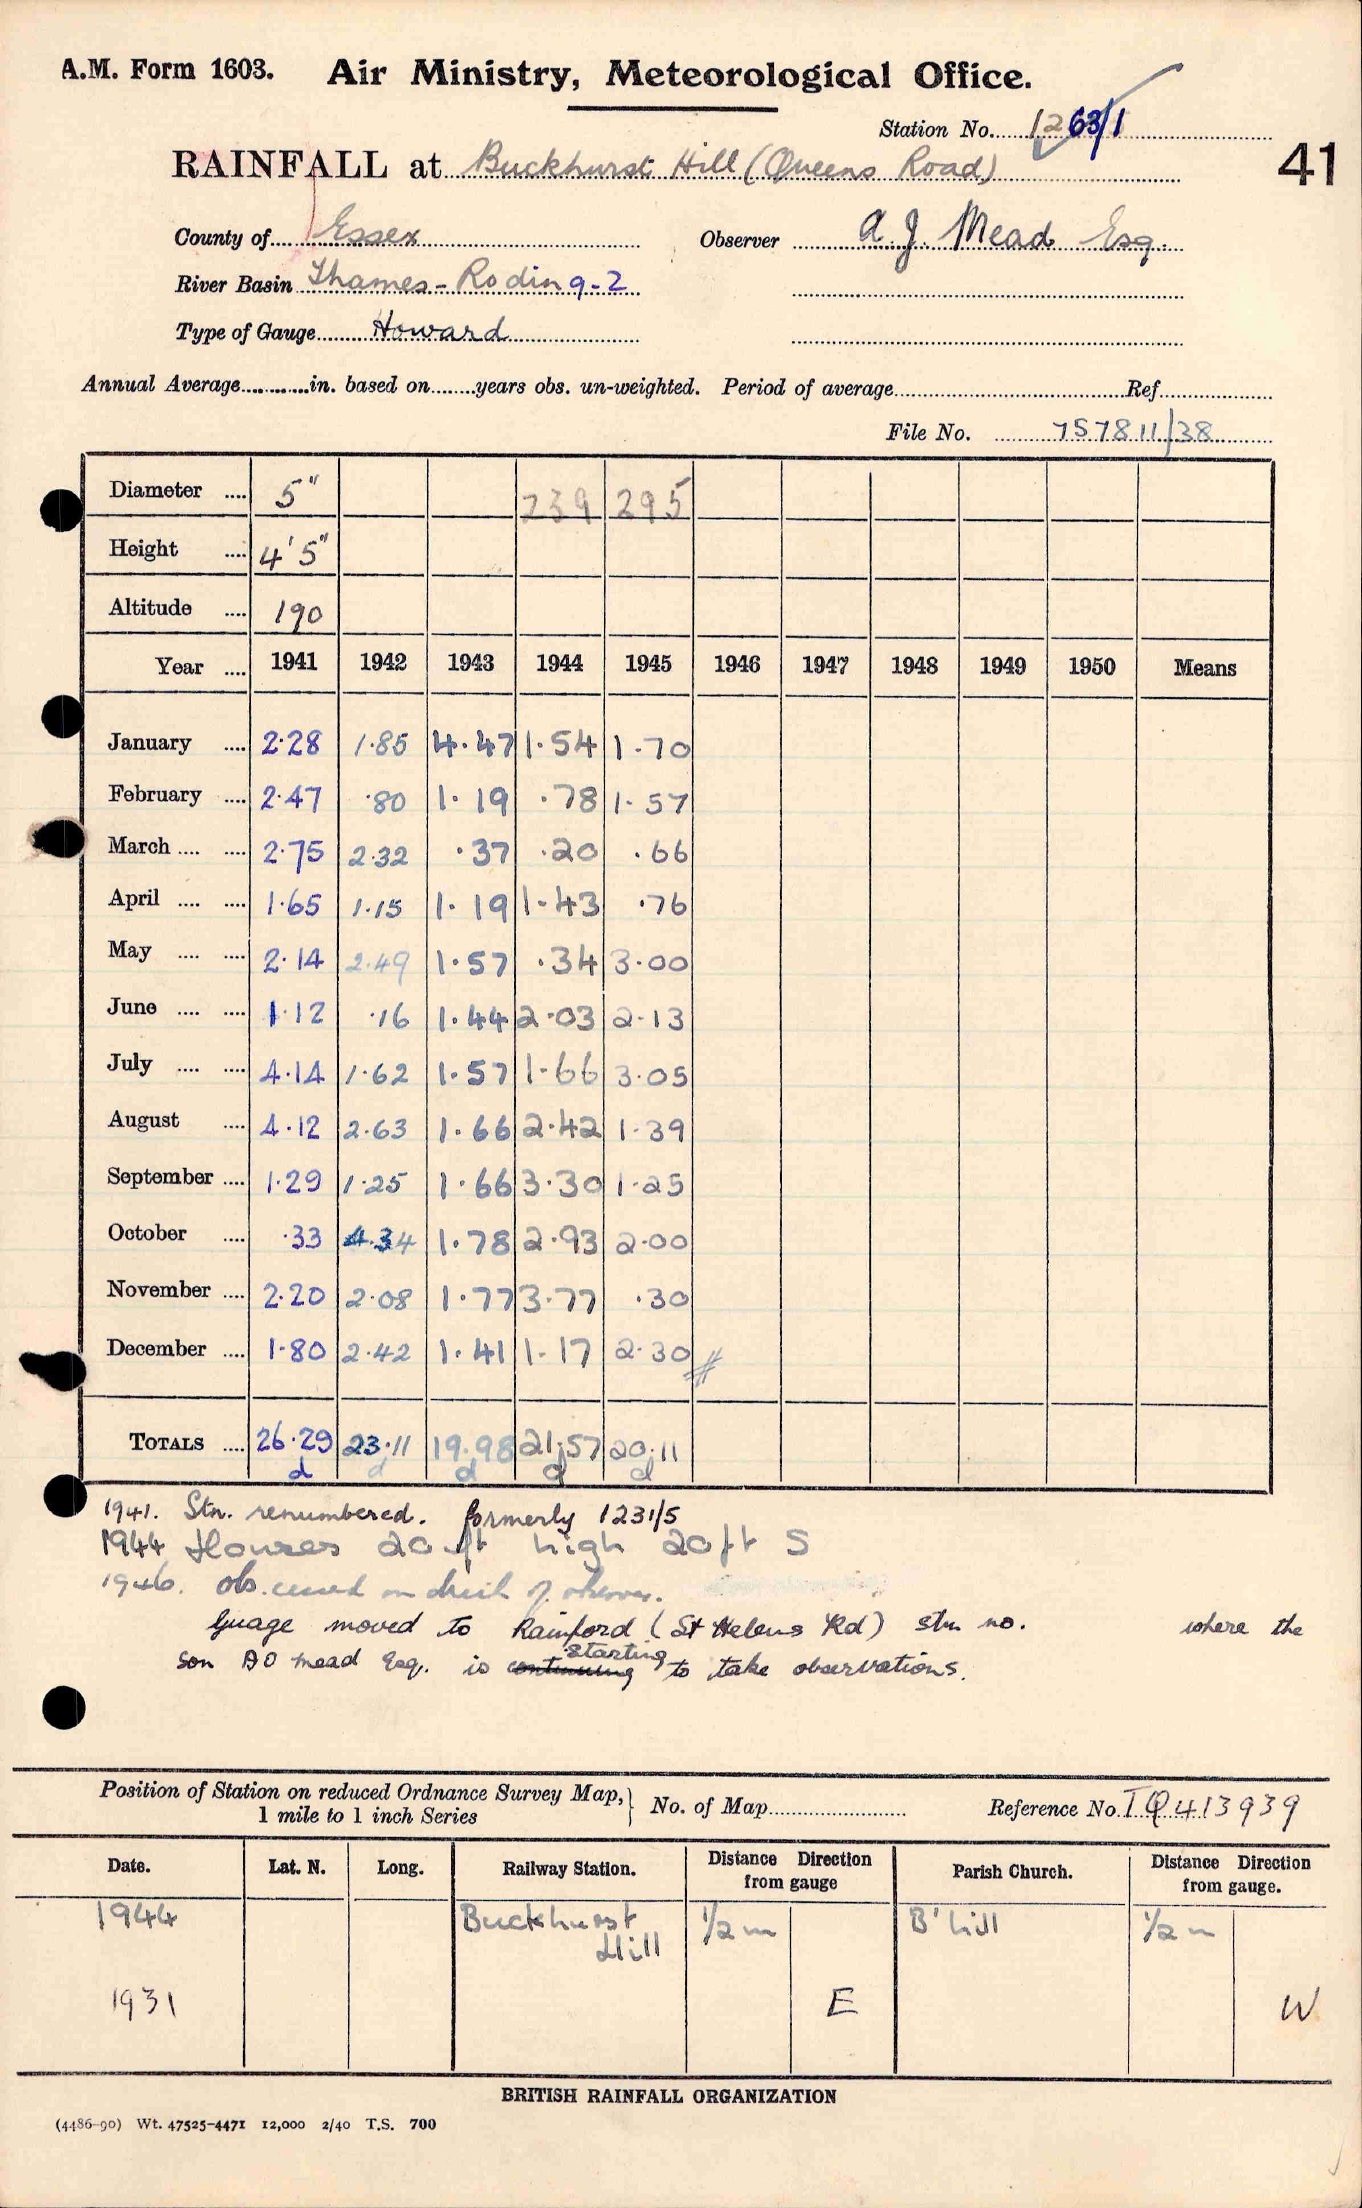 A.M. Form 1603. Air Ministry, Meteorological Office.
Station No. 1263/1
41
RAINFALL at Buckhurst Hill (Queens Road)
County of Essex Observer A. J. Mead Esq.
River Basin Thames-Roding 9-2
Type of Gauge Howard
Annual Average in. based on years obs. un-weighted. Period of average Ref
File No. 757811/38
Diameter .... 5" 239 295
Height .... 4' 5"
Altitude .... 190
Year .... 1941 1942 1943 1944 1945 1946 1947 1948 1949 1950 Means
January .... 2.28 1.85 4.47 1.54 1.70
February .... 2.47 .80 1.19 .78 1.57
March .... .... 2.75 2.32 .37 .20 .66
April .... .... 1.65 1.15 1.19 1.43 .76
May .... .... 2.14 2.49 1.57 .34 3.00
June .... .... 1.12 .16 1.44 2.03 2.13
July .... .... 4.14 1.62 1.57 1.66 3.05
August .... 4.12 2.63 1.66 2.42 1.39
September .... 1.29 1.25 1.66 3.30 1.25
October .... .33 4.34 1.78 2.93 2.00
November .... 2.20 2.08 1.77 3.77 .30
December .... 1.80 2.42 1.41 1.17 2.30
TOTALS .... 26.29 23.11 19.98 21.57 20.11
d d d d d
1941. Stn. renumbered. formerly 1231/5
1944 Houses 20 ft high 20ft S
1946. Obs. ceased on death of observer.
Guage moved to Rainford (St Helens Rd) stn no. where the
starting
son AO Mead Esq. is continuing to take observations.
Position of Station on reduced Ordnance Survey Map, No. of Map Reference No. TQ413939
1 mile to 1 inch Series
Date. Lat. N. Long. Railway Station. Distance Direction from gauge Parish Church. Distance Direction from gauge.
1944 Buckhurst Hill 1/2 m B'hill 1/2 m
1931 E W
BRITISH RAINFALL ORGANIZATION
(4486-90) Wt. 47525-4471 12,000 2/40 T.S. 700